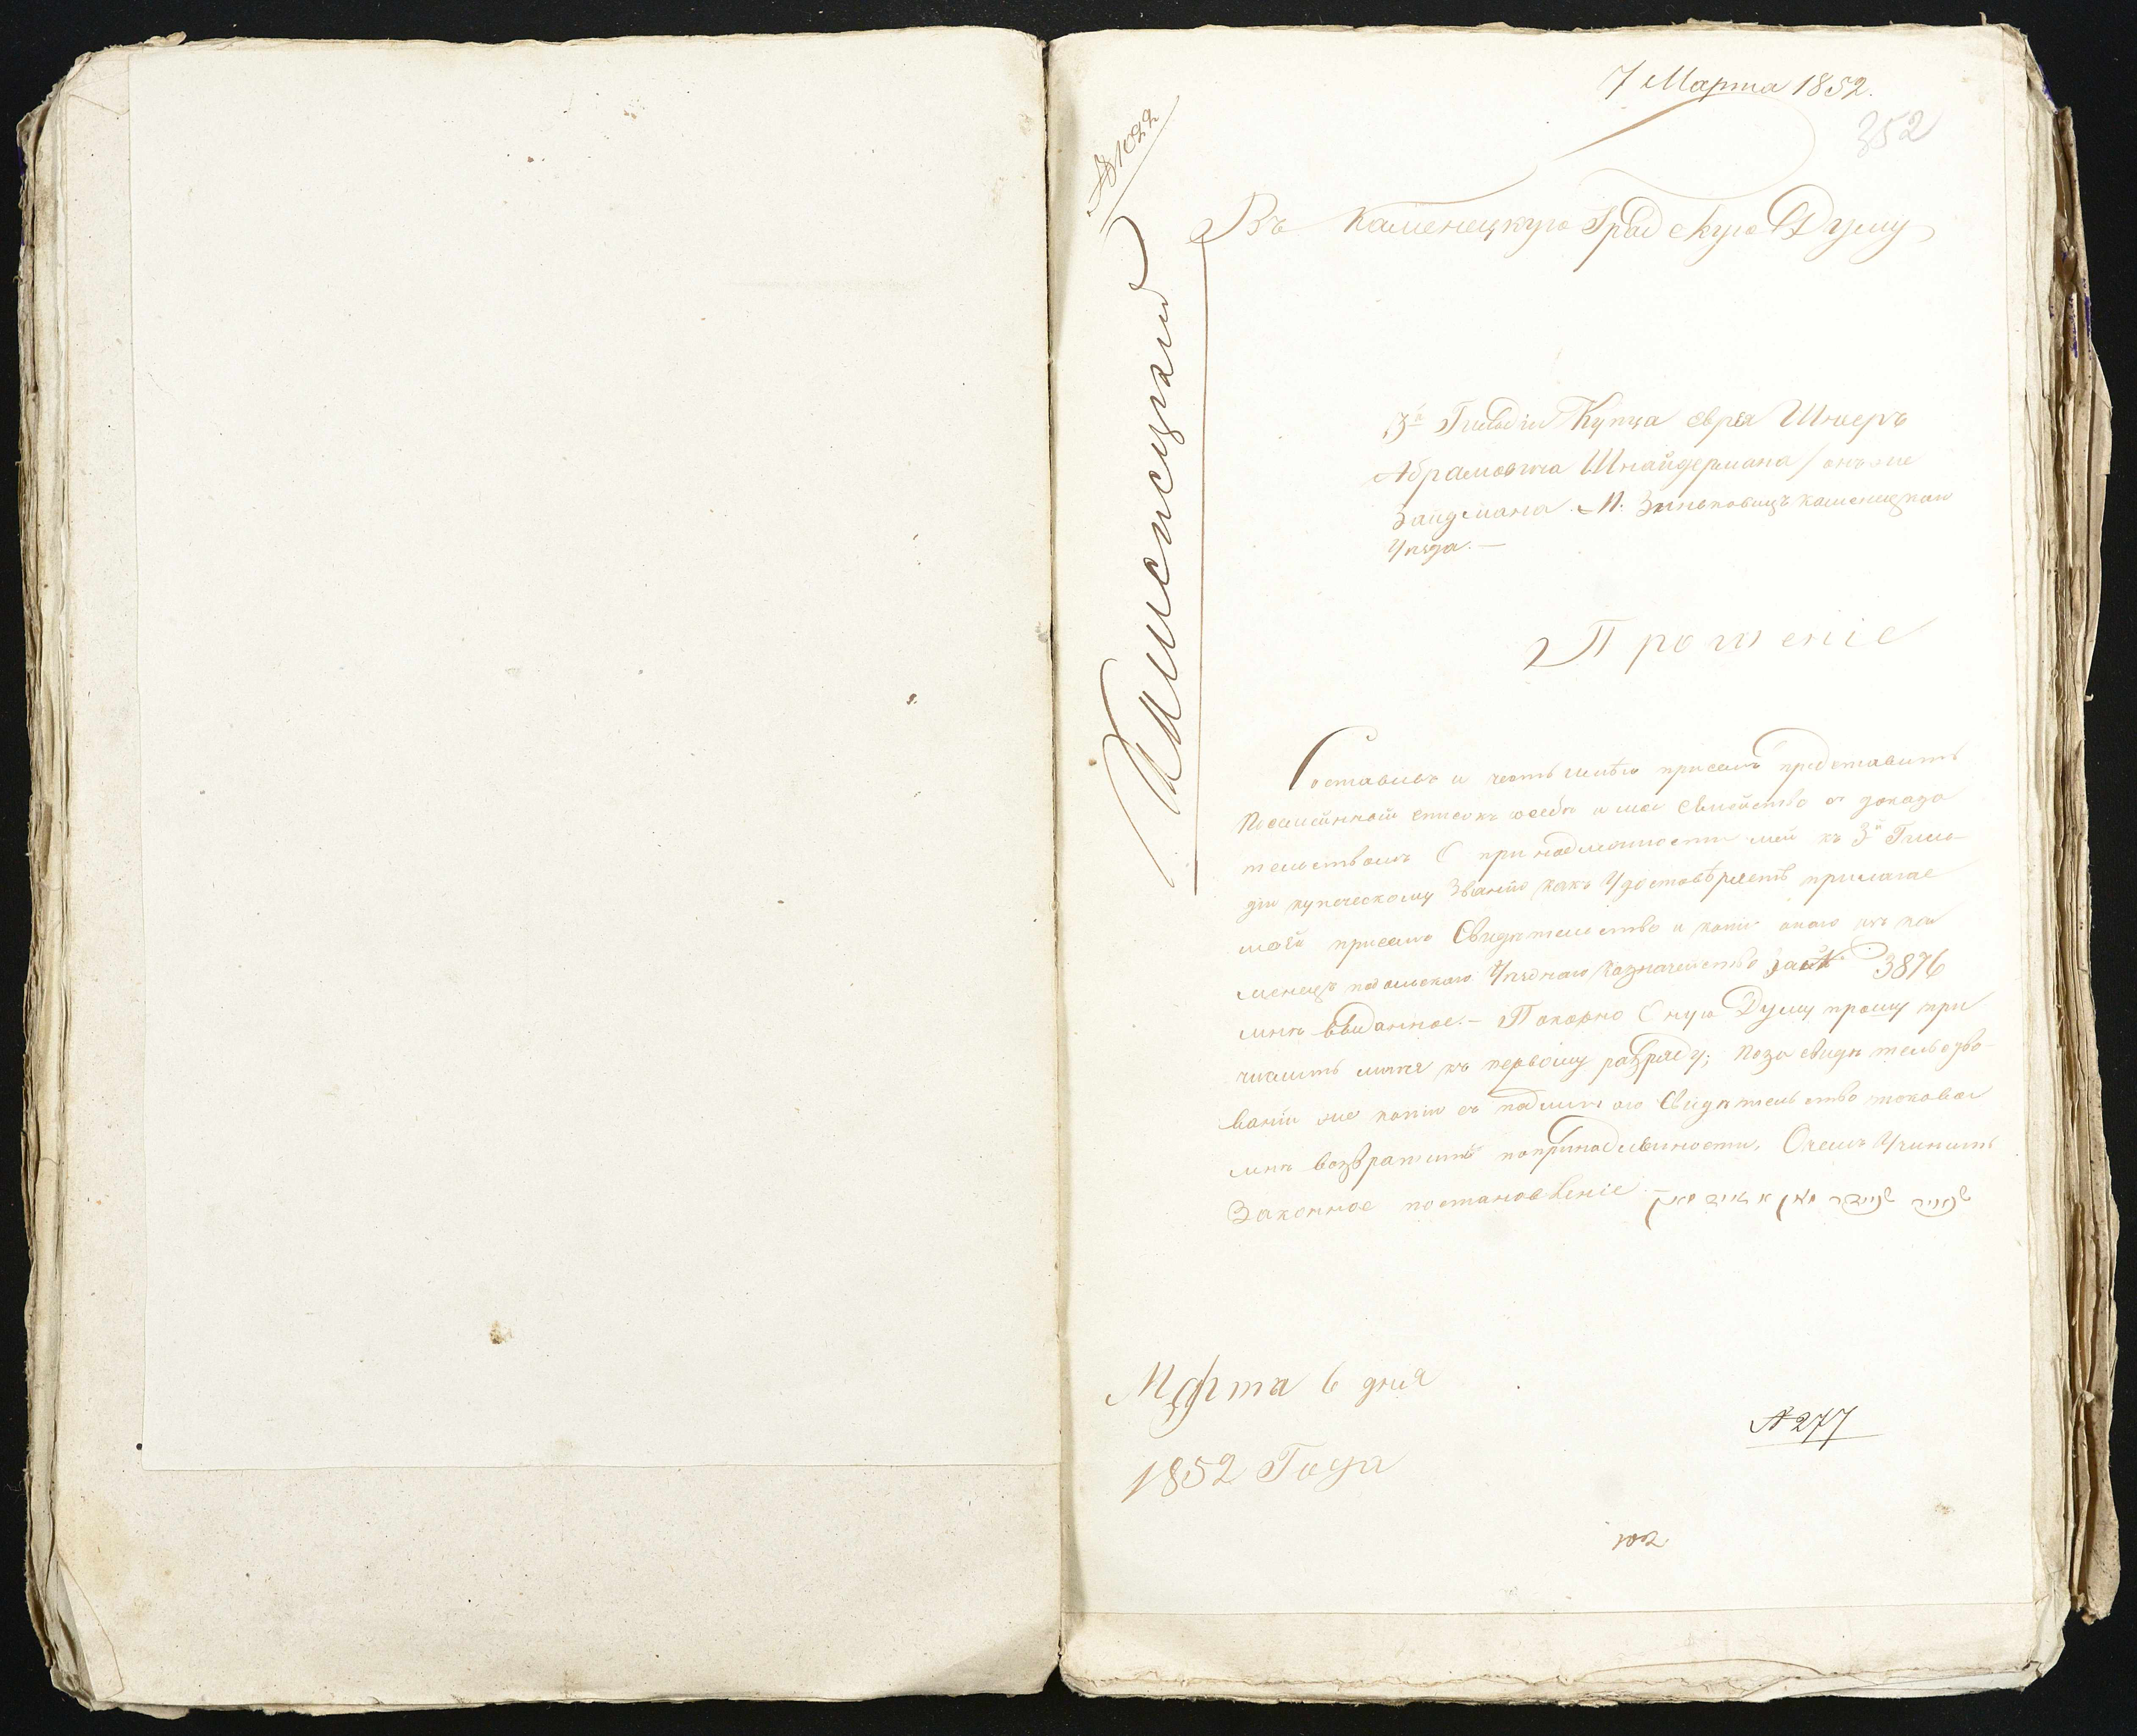 7 Марта 1852.
352
№ 1022
Въ Каменецкую Градскую Думу
3й Гильдіи Купца Еврея Шнеръ
Абрамовича Шнайдермана / онъ же
Зайдмана М. Зиньковицъ каменецкаго
Уѣзда. —
Прошеніе
Составивъ и честь имѣю присемъ представить
Посемѣйный списокъ о себѣ и мое Семейство о доказа
тельствомъ О принадлежности мей къ 3й Гиль-
діи купеческому Званію какъ Удостовѣряетъ прилагае
моѣй присемъ Свидѣтельство и копію оного изъ Ка
менецъ подольскаго Уѣзднаго Казначейство за № 3876
мнѣ Выданное. — Покорно Оную Думу прошу при
числить меня къ первому разряду; Позасвидѣтельство-
ваніи же копіи съ подлинного Свидѣтельство таковое
мнѣ Возвратить попринадлежности. Очемъ Учинить
Законное постановленіе. — שנייר שניידר מאן א זייד מאן
Марта 6 дня
1852 Года
№ 277
102